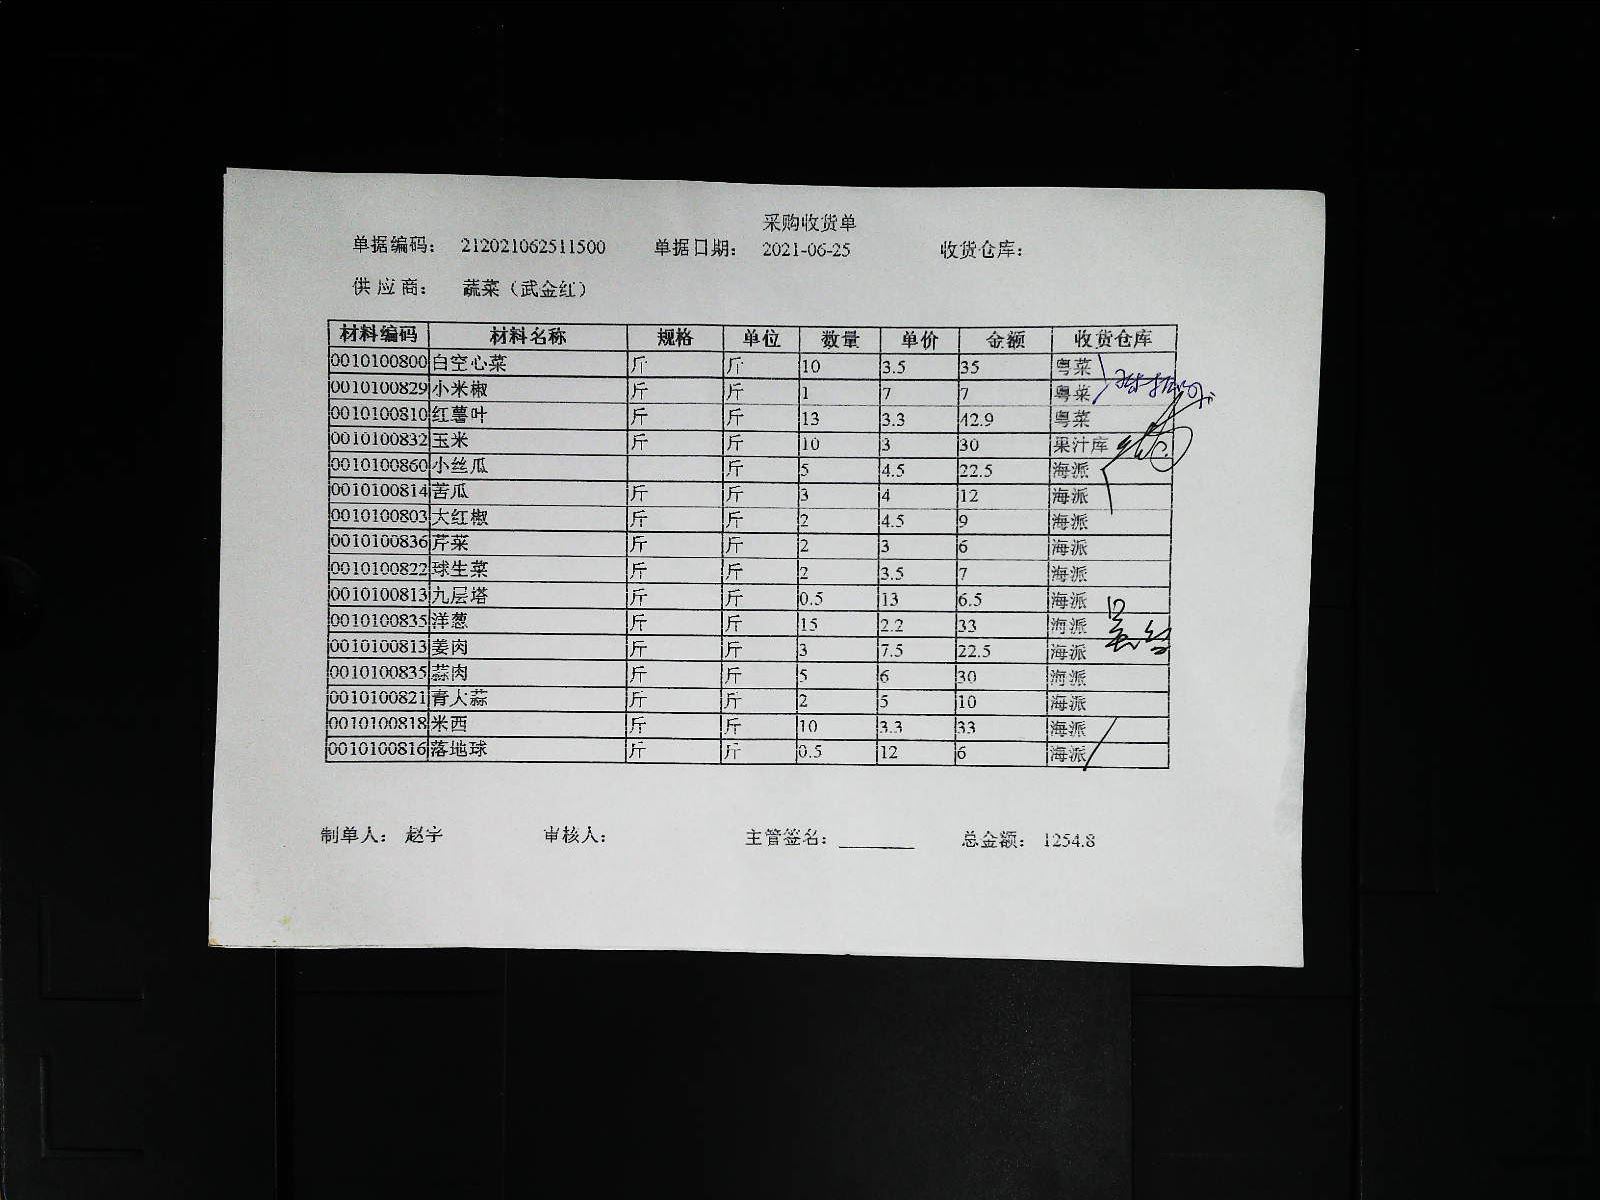 采购收货单
单据编码： 212021062511500 单据日期： 2021-06-25 收货仓库：
供 应 商： 蔬菜（武金红）
材料编码 材料名称 规格 单位 数量 单价 金额 收货仓库
0010100800 白空心菜 斤 斤 10 3.5 35 粤菜
0010100829 小米椒 斤 斤 1 7 7 粤菜
0010100810 红薯叶 斤 斤 13 3.3 42.9 粤菜
0010100832 玉米 斤 斤 10 3 30 果汁库
0010100860 小丝瓜 斤 5 4.5 22.5 海派
0010100814 苦瓜 斤 斤 3 4 12 海派
0010100803 大红椒 斤 斤 2 4.5 9 海派
0010100836 芹菜 斤 斤 2 3 6 海派
0010100822 球生菜 斤 斤 2 3.5 7 海派
0010100813 九层塔 斤 斤 0.5 13 6.5 海派
0010100835 洋葱 斤 斤 15 2.2 33 海派
0010100813 姜肉 斤 斤 3 7.5 22.5 海派
0010100835 蒜肉 斤 斤 5 6 30 海派
0010100821 青大蒜 斤 斤 2 5 10 海派
0010100818 米西 斤 斤 10 3.3 33 海派
0010100816 落地球 斤 斤 0.5 12 6 海派
制单人： 赵宇 审核人： 主管签名： 总金额： 1254.8